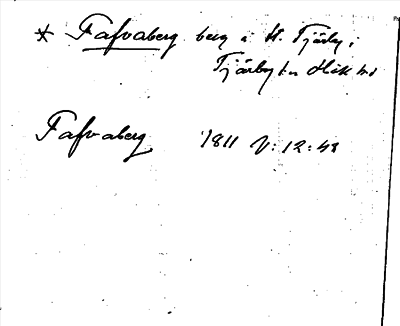 * Fafvaberg berg i St. Tjärby i
Tjärby sn Hök hd
Fafvaberg 1811 V:12:48